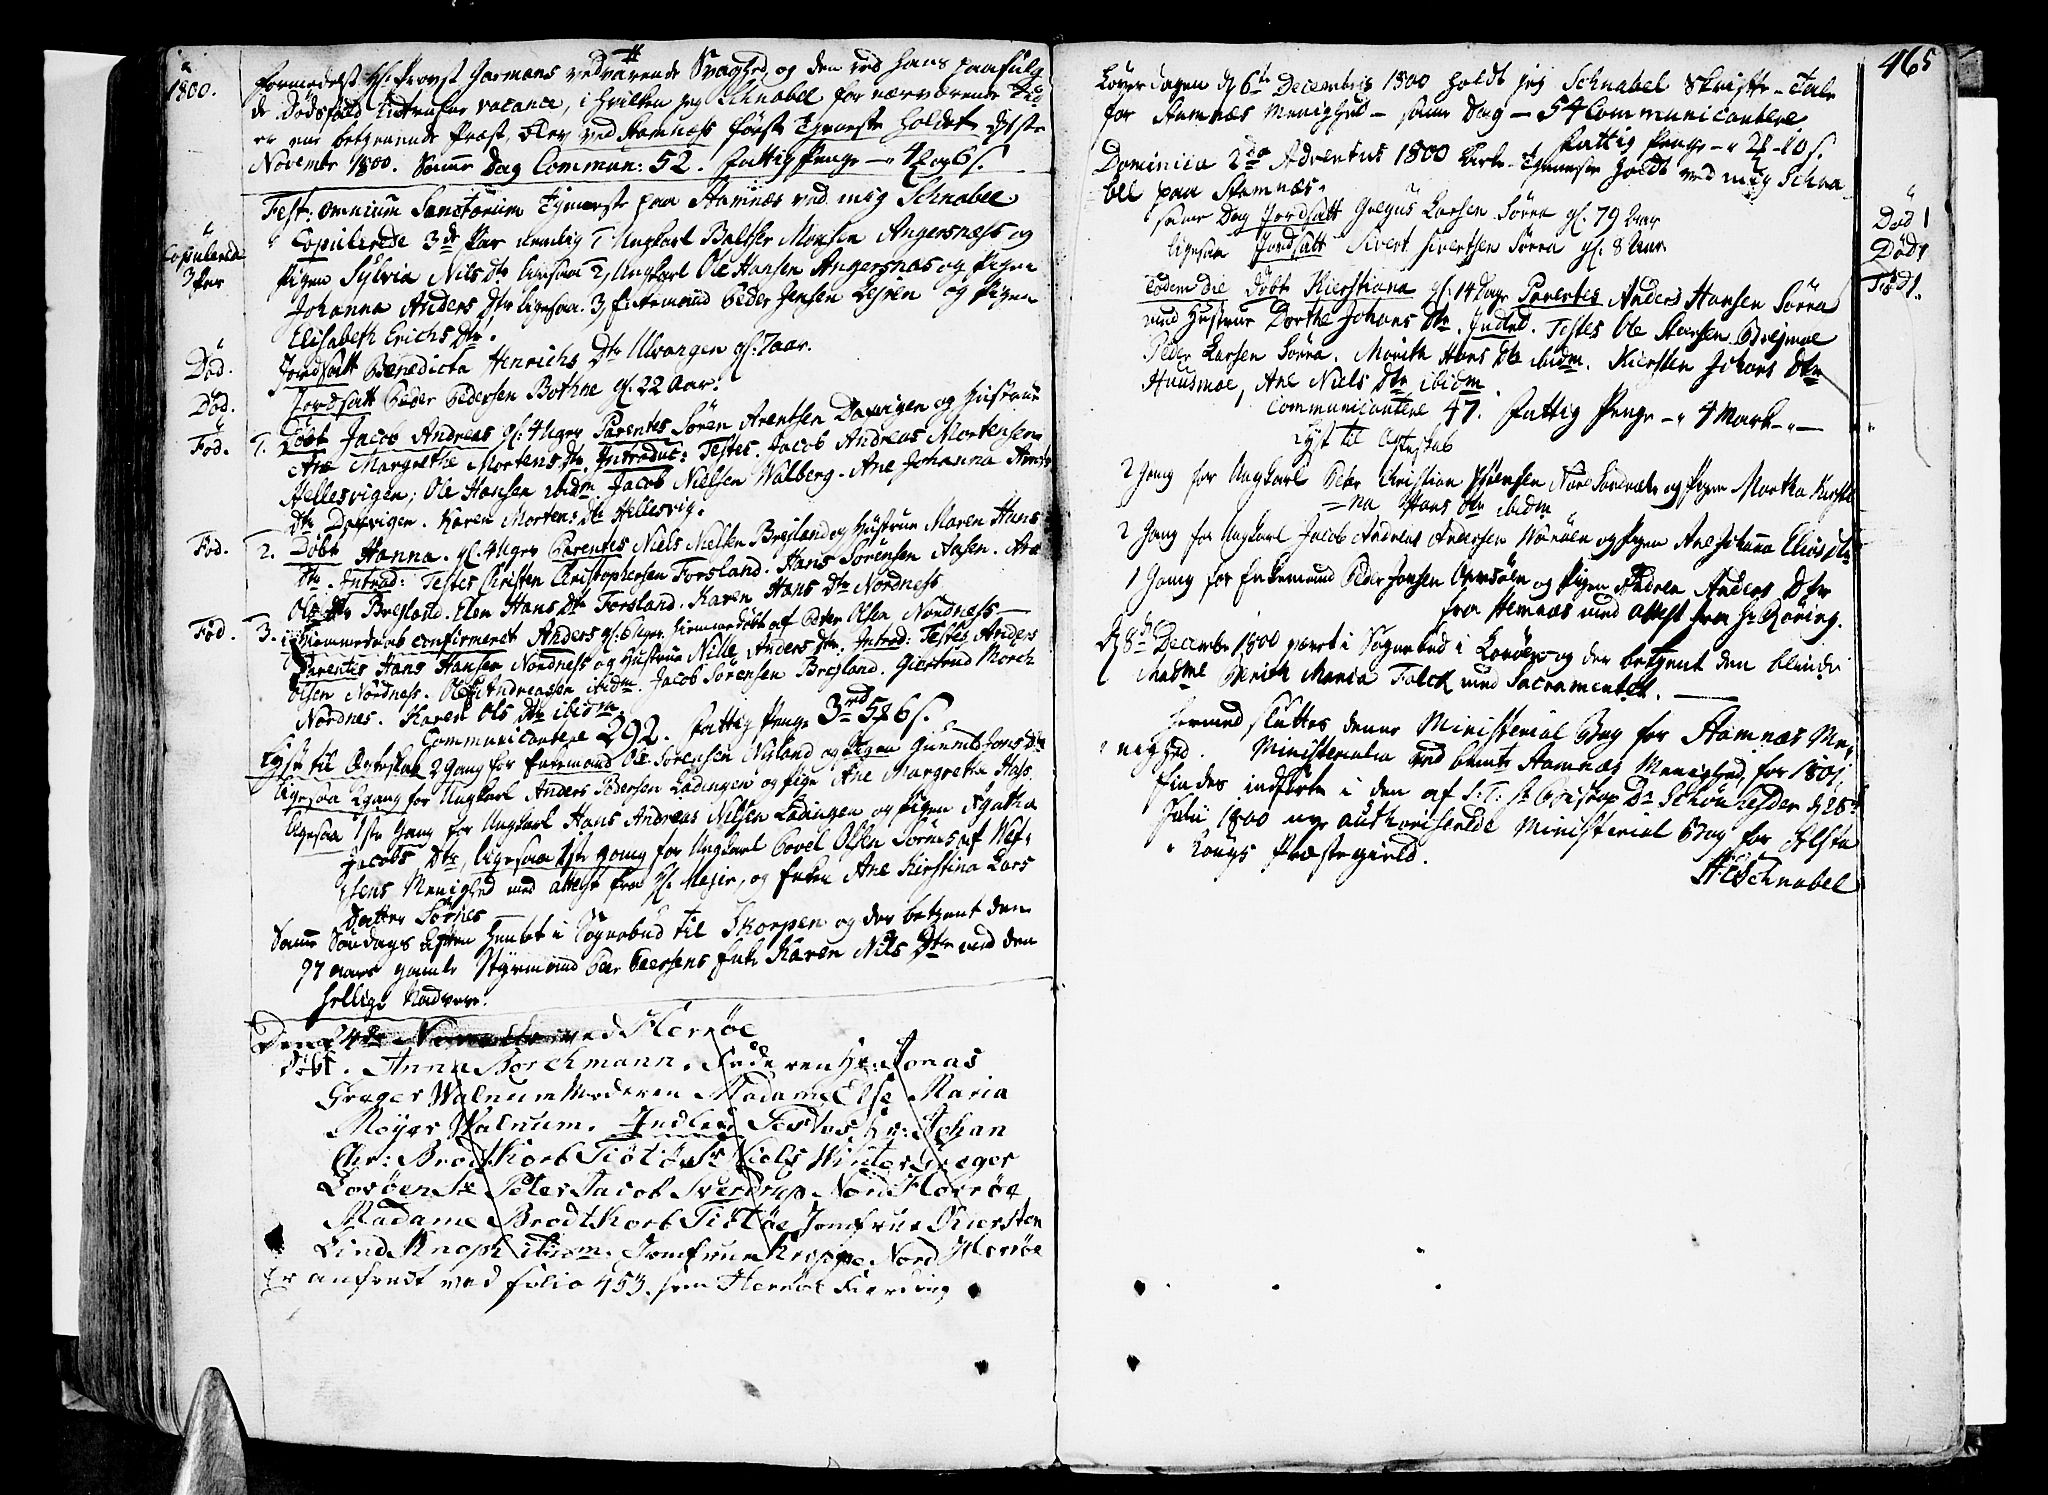 1800.
formedelst Hr. Provst Garmans vedvarende Svaghed og den ved hans paafulg
de Dødsfald indtrufne vacance, i hvilken jeg Schnabel for nærværende Tid
er ene betjenende Præst, blev ved Stamnæs første Tjeneste holdet d. 1ste
Novembr 1800. Samme Dag Commun: 52. Fattig Penge 4 og 6 s.
Fest: omnium Sanctorum Tjeneste paa Stamnæs ved mig Schnabel
Copulerede
3 Par
Copulerede 3de Par nemlig 1 Ungkarl Baltser Monsen Angersness og
Pigen Sylvia Nils Dtr ligesaa 2, Ungkarl Ole Hansen Angersnæs og Pigen
Johanna Anders Dtr ligesaa. 3, Enkemand Peder Jensen og Pigen
Elisabeth Erichs Dtr.
Død. Jordsatt Benedicta Henrichs Dtr Ulvangen gl. 7 aar.
Død. Jordsatt Peder Pedersen Bothne gl. 22 Aar.
Fød. 1. Døbt Jacob Andreas gl. 4 Uger Parentes Sören Arentsen og Hustrue
Ane Margrethe Mortens Dtr. Introduc: Testes. Jacob Andreas Mortensen
Hellesvigen; Ole Hansen ibidm Jacob Nielsen Walberg. Ane Johanna
Dtr. Karen Mortens Dtr Hellesvig.
Fød. 2. Døbt Hanna. gl. 4 Uger Parentes Niels Breisland og Hustrue Maren Hans
Dtr. Introd: Testes Christen Christophersen Forsland. Hans Sörensen Aasen. Ane
Ols Dtr Breisland. Elen Hans Dtr Forsland. Karen Hans Dtr Nordness
Fød. 3. Hiemmedaab confirmeret Anders gl. 6 Uger. hiemmedøbt af Peder Olsen Nordness
Parentes Hans Hansen Nordness og Hustrue Nille Anders Dtr. Introd: Testes Anders
Olsen Nordness. Ole Andreassen ibidm. Jacob Sörensen Breisland. Giertrud Morch
Nordnes. Karen Ols Dtr ibidm.
Communicantere 292. Fattig Penge 3 rd 5 6 s.
Lyst til Ægteskab 2 Gang for Enkemand Ole Sörensen Nisland og Pigen Gunnild Jons Dtr
ligesaa 2 gang for Ungkarl Anders Pedersen Ladingen og Pige Ane Margretha
ligesaa 1ste Gang for Ungkarl Hans Andreas Nilsen Ladingen og Pigen Agatha
Jacobs Dtr, ligesaa 1ste gang for Ungkarl Povel Olsen Sörnes af Nef-
sens Menighed med attest fra Hr. Mejer, og Enken Ane Kirstina Lars
Datter Sörnes
Samme Søndags Aften hentet i Sognebud til Skorpen og der betjent den
97 aars gamle Styrmand Peer Peersens Enke Karen Nils Dtr med den
hellige Nadvere.
Den 24de ved Herrøe
Døbt. Anna Borchmann. Faderen Hr: Jonas
Greger Walnum Moderen Madame Else Maria
Meyer Walnum. Indled Testes Hr: Johan
Chr: Brodtkorb Tiøtøe Sr. Niels Winter Greger
Lovøen Sr Peter Jacob Sverdrup Nord Herrøe
Madame Brodtkorb Tiøtøe Jomfrue Kiersten
Lind Knoph ibidm. Jomfrue Nord Herrøe
Er anført ved folio 453. Herrøe Fierding
465
Löverdagen d 6te Decembris 1800 holdt jeg Schnabel Skrifte-Tale
for Stamnæs Menighed - samme Dag - 54 Communicantere
Fattig Penge - 2 - 10 s.
Dominica 2da Adventus 1800 Kirke-Tjeneste holdt ved mig Schna-
bel paa Stamnæs.
samme Dag Jordsatt Gregus Larsen Sörra gl. 79 Aar Død 1
ligesaa Jordsatt Sivert Sivertsen Sörra gl. 8 Aar Død 1
Eodem die Døbt Kierstiana gl. 14 Dage Parentes Anders Hansen Sörra Fød 1.
med Hustrue Dorthe Johans Dtr. Indled. Testes Ole Larsen
Peder Larsen Sörra. Marith Hans Dtr ibidm. Kiersten Johans Dtr
Huusmoe, Ane Niels Dtr ibidm
Communicantere 47. Fattig Penge - 4 Mark
Lyst til Ægteskab
2 Gang for Ungkarl Peder Christian og Pigen Martha Kirsti
=na Hans Dtr ibidm
2 Gang for Ungkarl Jacob Andreas Andersen og Pigen Ane Johanna Elias Dtr
1 Gang for Enkemand Peder Jonsen og Pigen Andrea Anders Dtr
fra Hemnæs med attest fra Hr Röring.
D. 8de Decembr 1800 været i Sognebud i Lovøen og der betjent den blinde
Madme Berith Maria Falck med Sacramentet.
Hermed sluttes denne Ministerial Bog for Stamnæs Me-
nighed. Ministerialia ved bemte Stamnæs Menighed for 1801
findes indførte i den af S: T: Hr Biskop Dr Schönheyder d 28
Julii 1800 nye authoriserede Ministerial Bog for Alsta
-hougs Præstegield.
Schnabel